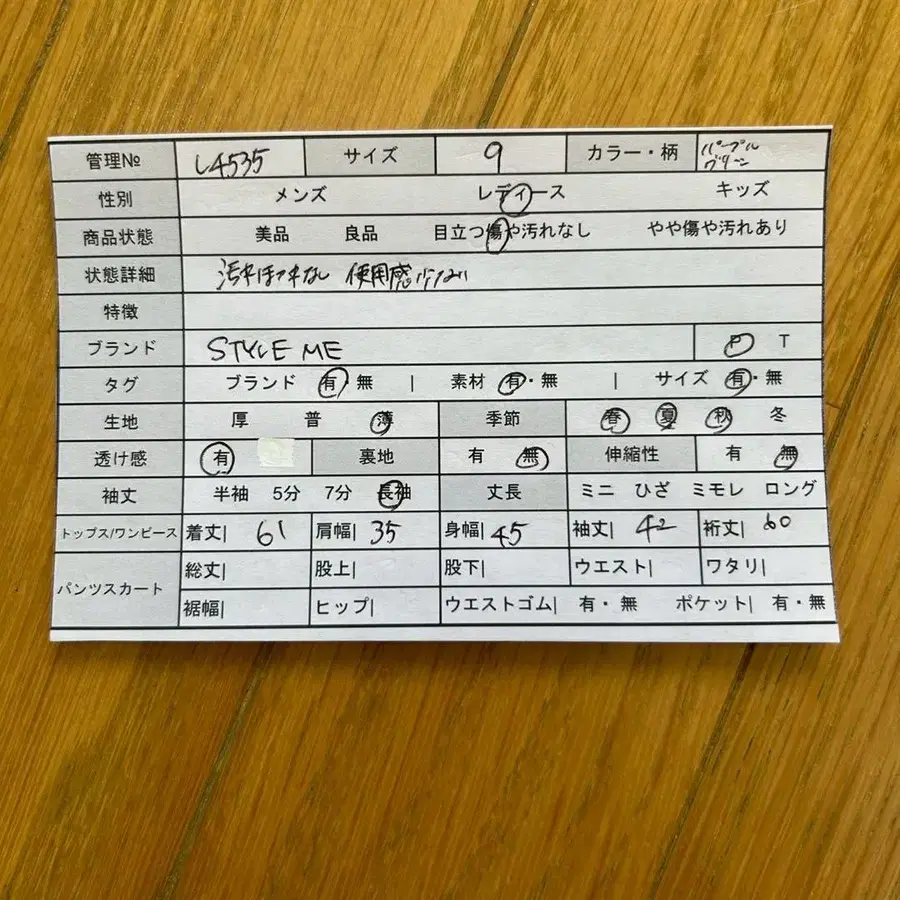 管理№ L4535 サイズ 9 カラー・柄 パープル グリーン
性別 メンズ レディース キッズ
商品状態 美品 良品 目立つ傷や汚れなし やや傷や汚れあり
状態詳細 汚れほつれなし 使用感少ない
特徴
ブランド STYLE ME P T
タグ ブランド 有・無 | 素材 有・無 | サイズ 有・無
生地 厚 普 薄 季節 春 夏 秋 冬
透け感 有 裏地 有 無 伸縮性 有 無
袖丈 半袖 5分 7分 長袖 丈長 ミニ ひざ ミモレ ロング
トップス/ワンピース 着丈| 61 肩幅| 35 身幅| 45 袖丈| 42 裄丈| 60
パンツスカート 総丈| 股上| 股下| ウエスト| ワタリ|
裾幅| ヒップ| ウエストゴム| 有・無 ポケット| 有・無